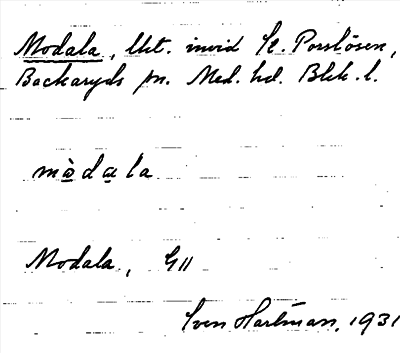 Modala, lkt. invid St. Porslösen,
Backaryds sn. Med. hd. Blek. l.
mòdala
Modala, G11
Sven Hartman, 1931